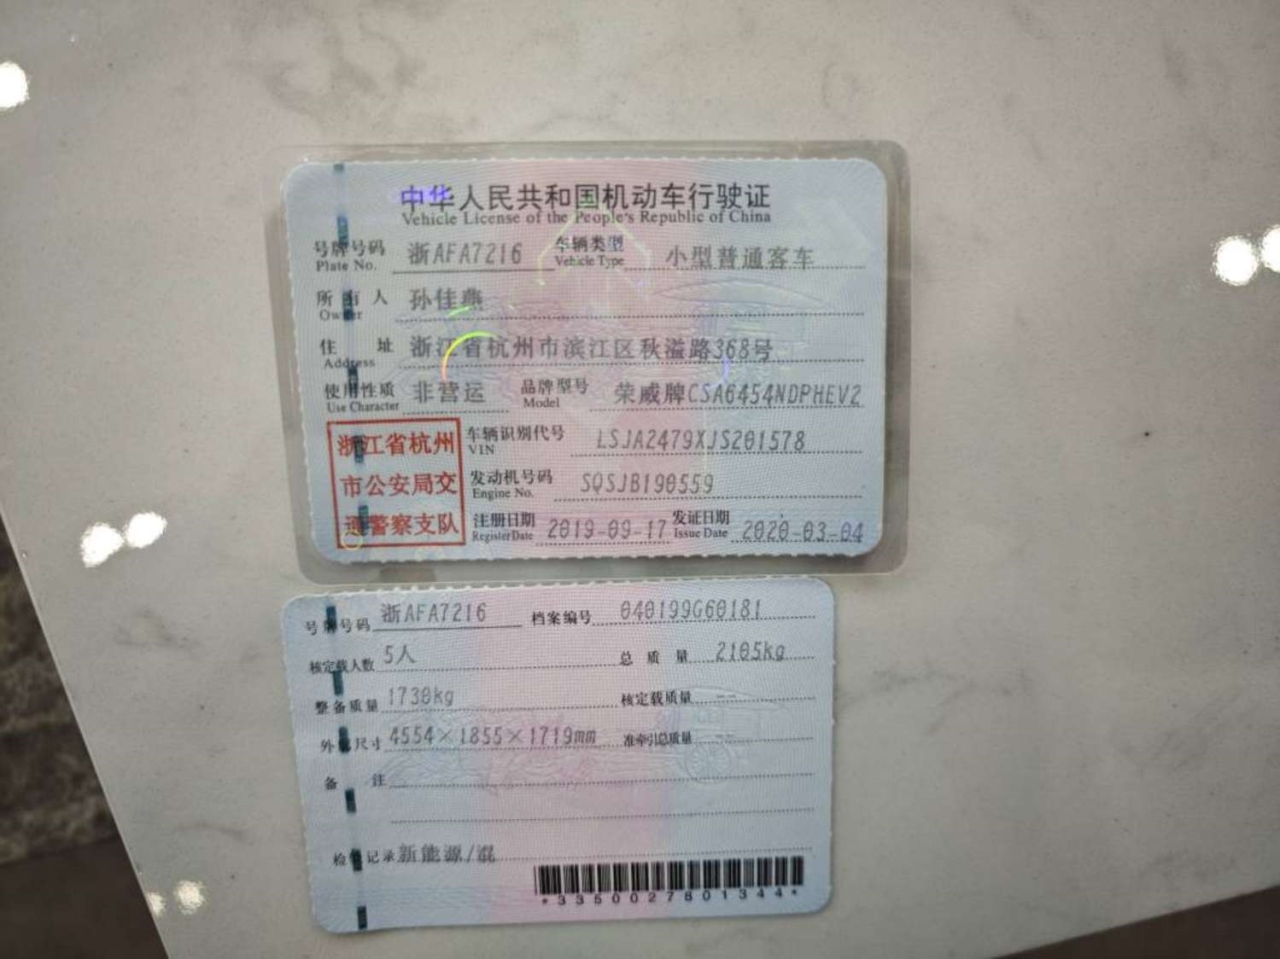 中华人民共和国机动车行驶证
Vehicle License of the People's Republic of China
号牌号码 浙AFA7216 车辆类型 小型普通客车
Plate No. Vehicle Type
所有人 孙佳燕
Owner
住址 浙江省杭州市滨江区秋溢路368号
Address
使用性质 非营运 品牌型号 荣威牌CSA6454NDPHEV2
Use Character Model
浙江省杭州
市公安局交
通警察支队
车辆识别代号 LSJA2479XJS201578
VIN
发动机号码 SQSJB190559
Engine No.
注册日期 2019-09-17 发证日期 2020-03-04
Register Date Issue Date
号牌号码 浙AFA7216 档案编号 040199G60181
核定载人数 5人 总质量 2105kg
整备质量 1730kg 核定载质量 --
外廓尺寸 4554×1855×1719mm 准牵引总质量 --
备注
检验记录 新能源/混
*3350027801344*